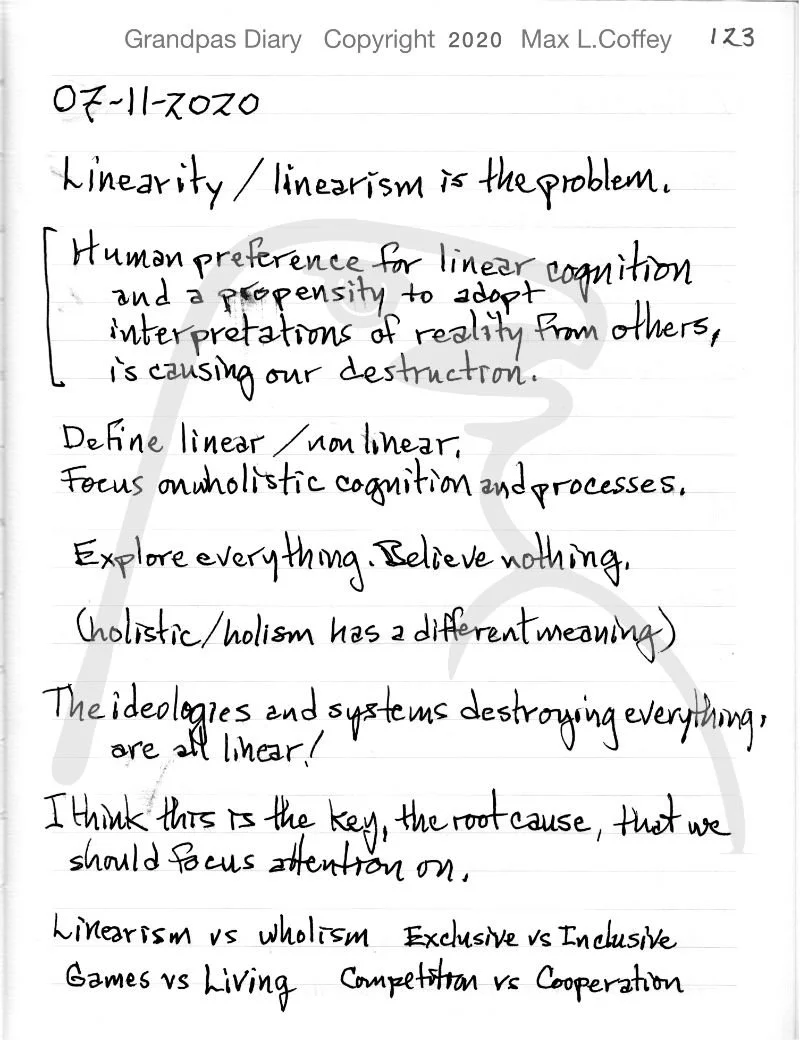 Grandpas Diary Copyright 2020 Max L.Coffey 123
07-11-2020
Linearity / linearism is the problem.
Human preference for linear cognition
and a propensity to adopt
interpretations of reality from others,
is causing our destruction.
Define linear / nonlinear.
Focus on wholistic cognition and processes.
Explore everything. Believe nothing.
(holistic/holism has a different meaning)
The ideologies and systems destroying everything,
are all linear!
I think this is the key, the root cause, that we
should focus attention on.
Linearism vs wholism Exclusive vs Inclusive
Games vs Living Competition vs Cooperation